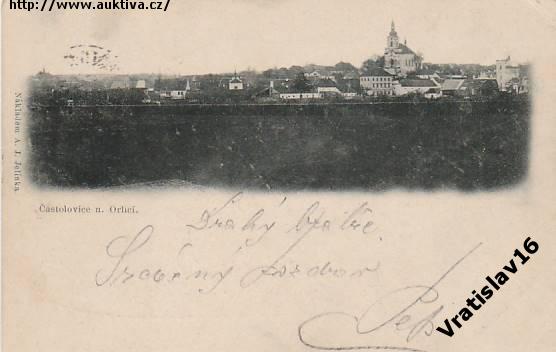 http://www.auktiva.cz/
Nákladem A. J. Jelinka.
Častolovice n. Orlicí.
Drahý bratře.
Srdečný pozdrav
Pep
Vratislav16